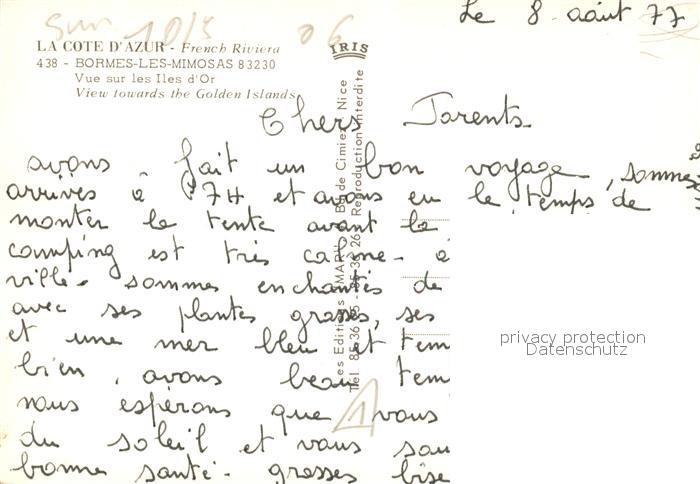 Le 8 août 77
Sun 10/5 06
LA COTE D'AZUR - French Riviera
438 - BORMES-LES-MIMOSAS 83230
Vue sur les Iles d'Or
View towards the Golden Islands
IRIS
Les Editions "MAR", Bd de Cimiez, Nice
Reproduction interdite
Chers Parents
avons fait un bon voyage, sommes
arrivés à 17H et avons eu le temps de
monter la tente avant la
camping est très calme - à
ville - sommes enchantés de
avec ses plantes grasses, ses
et une mer bleu et tem
bien, avons beau tem
nous espérons que vous
du soleil et vous sou
bonne santé - grosses bise
1
privacy protection
Datenschutz